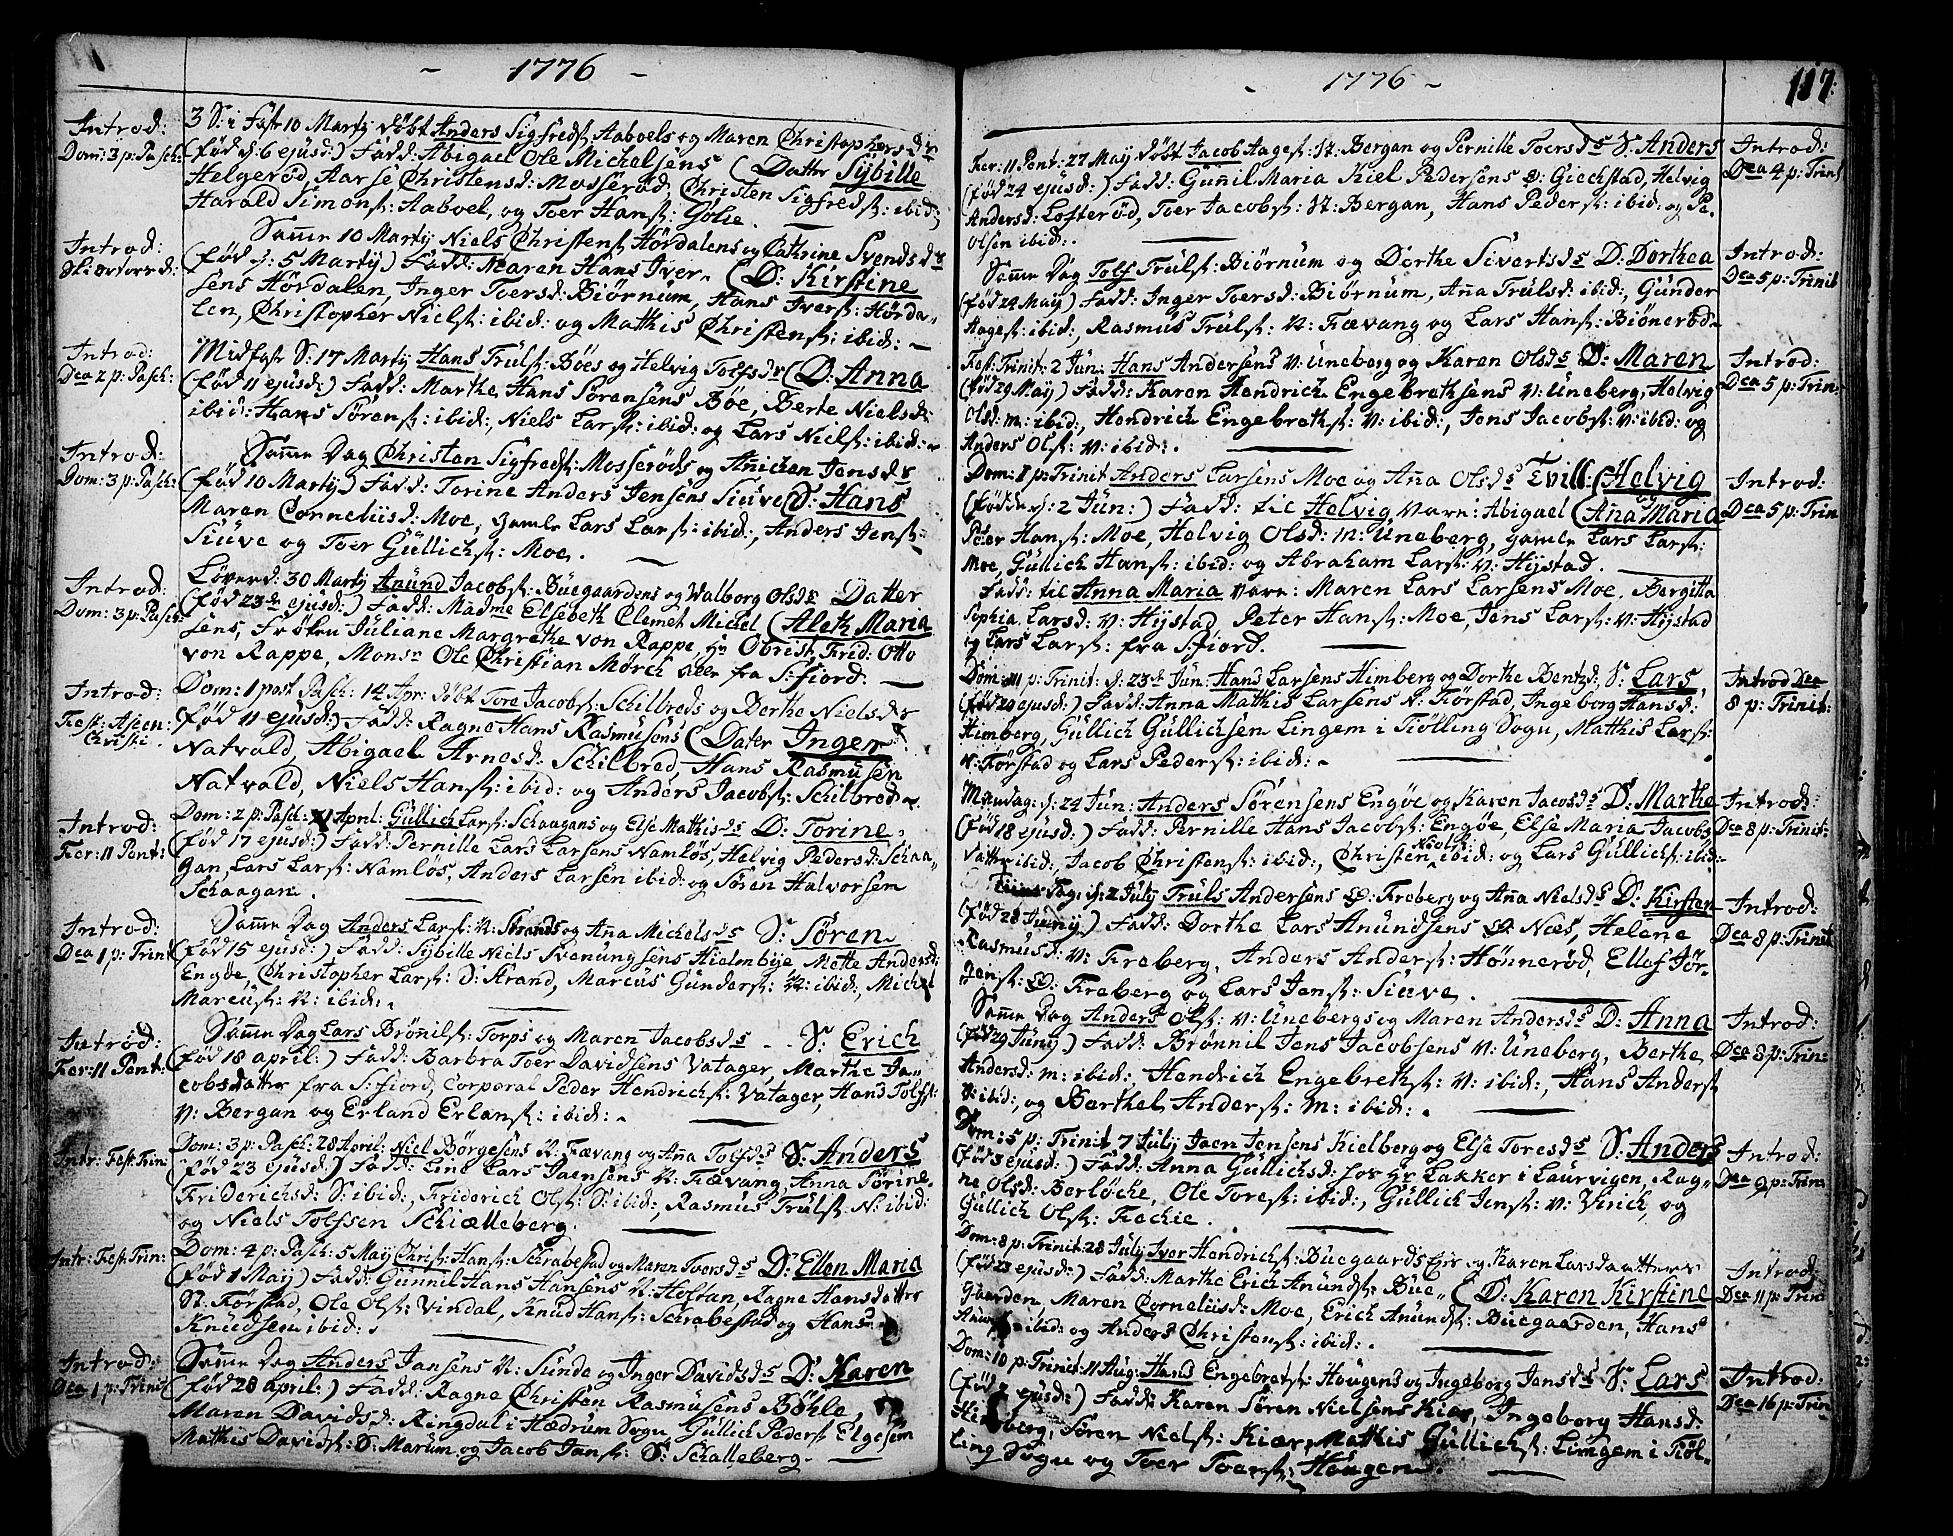 - 1776 -
Introd:
Dom: 3 p: Pasch:
3 S: i Faste 10 Martÿ døbt Anders Sigfredsø: Aaboels og Maren Christophersdr
(fød d: 6 ejusd:) Fadd: Abigael Ole Michelsens (Datter Sÿbille
Helgerød, Aarse Christensd: Mosserød, Christen Sigfredsø: ibid:
Harald Simonsø: Aaboel, og Toer Hansø: Golie.
Introd:
Samme 10 Martÿ Niels Christensø: Hørdalens og Cathrine Svendsdr
(fød d: 5 Martÿ) Fadd: Maren Hans Iver- (D: Kirstine
sens Hørdalen, Inger Toersd: Biørnum, Hans Iversø: Hørda-
len, Christopher Nielsø: ibid: og Mathis Christensø: ibid:
Introd:
Dca 2 p: Pasch:
Midfaste S: 17 Martÿ Hans Trulsø: Bøes og Helvig Tolfsdr (D: Anna
(fød 11 ejusd:) Fadd: Marthe Hans Sørensens Bøe, Berte Nielsd:
ibid: Hans Sørensø: ibid:, Niels Larsø: ibid: og Lars Nielsø: ibid:
Introd:
Dom: 3 p: Pasch:
Samme Dag Christen Sigfredsø: Mosserøds og Anichen Jensdr
(fød 10 Martÿ) Fadd: Torine Anders Jensens Siuve (S: Hans
Maren Corneliisd: Moe, gamle Lars Larsø: ibid:, Anders Jensø:
Siuve og Toer Gullichsø: Moe.
Introd:
Dom: 3 p: Pasch:
Løverd: 30 Martÿ Anund Jacobsø: Buegaardens og Walborg Olsdr Datter
(fød 23de ejusd:) Fadd: Madme Elsebeth Clemet Michel (Aleth Maria
sens, Frøken Juliane Margrethe von Rappe, Hr Obrist Frid: Otto
von Rappe, Monsr Ole Christian Mørch alle fra S:fiord.
Introd:
Fest: Ascen:
Christi.
Dom: 1 post Pasch: 14 Apr: døbt Tore Jacobsø: Schilbreds og Berthe Nielsdr
(fød 11 ejusd:) Fadd: Ragne Hans Rasmusens (Dater Inger
Natvald, Abigael Arnesd: Schilbred, Hans Rasmusen
Natvald, Niels Hansø: ibid: og Anders Jacobsø: Schilbred.
Introd:
Fer: 11 Pent:
Dom: 2 p: Pasch: 21 April: Gullich Larsø: Schaagans og Else Mathisds D: Torine
(fød 17 ejusd:) Fadd: Pernille Lars Larsens Namløs, Helvig Pedersd: Schaa-
gan, Lars Larsø: Namløs, Anders Larsen ibid: og Søren Halvorsen
Schaagan.
Introd:
Dca 1 p: Trinit
Samme Dag Anders Larsø: N: Strands og Ana Michelsds S: Søren
(fød 15 ejusd:) Fadd: Sÿbille Niels Svenungsens Hielmbÿe, Mette Andersd:
Engøe, Christopher Larsø: S: Strand, Marcus Gundersø: N: ibid:, Michel
Marcusø: N: ibid:.
Introd:
Fer: 11 Pent:
Samme Dag Lars Brønilsø: Torps og Maren Jacobsds - - S: Erich
(fød 18 april:) Fadd: Barbra Toer Davidsens Vatager, Marthe Ja-
cobsdatter fra S:fiord, Corporal Peder Hendrichsø: Vatager, Hans Tolfsø:
N: Bergan og Erland Erlansø: ibid:.
Intr: Fest: Trin:
Dom: 3 p: Pasch: 28 April: Niel Børgesens N: Fævang og Ana Tolfsds S: Anders
(fød 23 ejusd:) Fadd: Line Lars Jaensens N: Fævang, Anna Sørine
Friderichsd: S: ibid:, Friderich Olsø: S: ibid:, Rasmus Trulsø: N: ibid:
og Niels Tolfssen Schiælleberg.
Intr: Fest: Trin:
Dom: 4 p: Pasch: 5 Maÿ Chrisø: Hansø: Schrabestad og Maren Iversds D: Ellen Maria
(fød 1 Maÿ) Fadd: Gunnil Hans Hansens N: Hoftan, Ragne Hansdatter
N: Førstad, Ole Olsø: Vindal, Knud Hansø: Schrabestad og Hans
Knudsen ibid:.
Introd:
Dca 1 p: Trinit
Samme Dag Anders Jansens N: Sunde og Inger Davidsds D: Karen
(fød 28 april:) Fadd: Ragne Christen Rasmusens Bøhle,
Maren Davidsd: Ringdal i Hædrum Sogn, Gullich Pedersø: Elgesem
Mathis Davidsø: S: Marum og Jacob Jansø: S: Schalleberg.
- 1776 -
117
Fer: 11 Pent: 27 Maÿ døbt Jacob Aagesø: St: Bergan og Pernille Toersds S: Anders
(fød 24 ejusd:) Fadd: Gunnil Maria Kiel Pedersens S: Giechstad, Helvig
Andersd: Lofterød, Toer Jacobsø: St: Bergan, Hans Pedersø: ibid: og Pe-
olsen ibid:.
Introd:
Dca 4 p: Trinit
Samme Dag Tolf Trulsø: Biørnum og Dorthe Sivertsds D: Dorthea
(fød 24 Maÿ) Fadd: Inger Toersd: Biørnum, Ana Trulsd: ibid:, Gunder
Aagesø: ibid:, Rasmus Trulsø: N: Fævang og Lars Hansø: Biønerød
Introd:
Dca 5 p: Trinit
Fest: Trinit: 2 Jun: Hans Andersens N: Uneberg og Karen Olsds D: Maren
(fød 29 Maÿ) Fadd: Karen Hendrich Engebrethsens N: Uneberg, Helvig
Olsd: m: ibid:, Hendrich Engebrethsø: N: ibid:, Jens Jacobsø: N: ibid: og
Anders Olsø: N: ibid:.
Introd:
Dca 5 p: Trin:
Dom: 1 p: Trinit Anders Larsens Moe og Ana Olsds Tvill: (Helvig
(fødde d: 2 Jun:) Fadd: til Helvig vare: Abigael (Ana Maria
Peter Hansø: Moe, Helvig Olsd: m: Uneberg, gamle Lars Larsø:
Moe, Gullich Hansø: ibid: og Abraham Larsø: N: Hÿstad.
Fadd: til Anna Maria vare: Maren Lars Larsens Moe, Bergitta
Sophia Larsd: N: Hÿstad, Peter Hansø: Moe, Jens Larsø: N: Hÿstad
og Lars Larsø: fra S:fiord.
Introd:
Dca 5 p: Trin
Dom: 111 p: Trinit: d: 23de Jun: Hans Larsens Himberg og Dorthe Bentsd, S: Lars
(fød 20 ejusd:) Fadd: Anna Mathis Larsens N: Førstad, Ingeborg Hansd:
Himberg, Gullich Gullichsen Lingem i Tiølling Sogn, Mathis Larsø:
N: Førstad og Lars Pedersø: ibid:.
Introd Dca
8 p: Trinit:
Mandag d: 24 Jun: Anders Sørensens Engøe og Karen Jacosds D: Marthe
(fød 18 ejusd:) Fadd: Pernille Hans Jacobsø: Engøe, Else Maria Jacobs
datter ibid:, Jacob Christensø: ibid:, Christen Nielsø: ibid: og Lars Gullichsø: ibid:
Introd:
Dca 8 p: Trinit:
Dag d: 2 Julÿ Truls Andersens S: Freberg og Ana Nielsds D: Kirsten
(fød 28 Junÿ) Fadd: Dorthe Lars Anundsens S: Næs, Helene
Rasmusd: N: Freberg, Anders Andersø: Hønnerød, Ellef Jør-
gensø: S: Freberg og Lars Jensø: Siuve.
Introd:
Dca 8 p: Trinit
Samme Dag Anders Olsø: N: Unebergs og Maren Andersds D: Anna
(fød 29 Junÿ) Fadd: Brønnil Jens Jacobsens N: Uneberg, Berthe
Andersd: m: ibid:, Hendrich Engebrethsø: N: ibid:, Hans Andersø
N: ibid:, og Berthel Andersø: m: ibid:.
Introd:
Dca 8 p: Trin:
Dom: 5 p: Trinit 7 Julÿ Jaen Jensens Kielberg og Else Toresds S: Anders
(fød 3 ejusd:) Fadd: Anna Gullichsd: hos Hr Lakker i Laurvigen, Rag-
ne Olsd: Berløche, Ole Toresø: ibid:, Gullich Jensø: N: Virich, og
Gullich Olsø: Fechie.
Introd:
Dca 9 p: Trin:
Dom: 8 p: Trinit: 28 Julÿ Iver Hendrichsø: Buegaards Ejer og Karen Larsdatters
(fød 23 ejusd:) Fadd: Marthe Erich Anundsø: Bue- (D: Karen Kirstine
gaarden, Maren Corneliisd: Moe, Erich Anundsø: Buegaarden, Hans
ibid: og Anders Christensø: ibid:.
Introd:
Dca 11 p: Trin
Dom: 10 p: Trinit: 11 Aug: Hans Engebretsø: Hougens og Ingeborg Jensds S: Lars
(fød ejusd:) Fadd: Karen Søren Nielsens Kiær, Ingeborg Hansd:
Himberg, Søren Nielsø: Kiær, Mathis Gullichsø: Limgem i Tiøl-
ling Sogn og Toer Toersø: Hougen.
Introd:
Dca 16 p: Trin